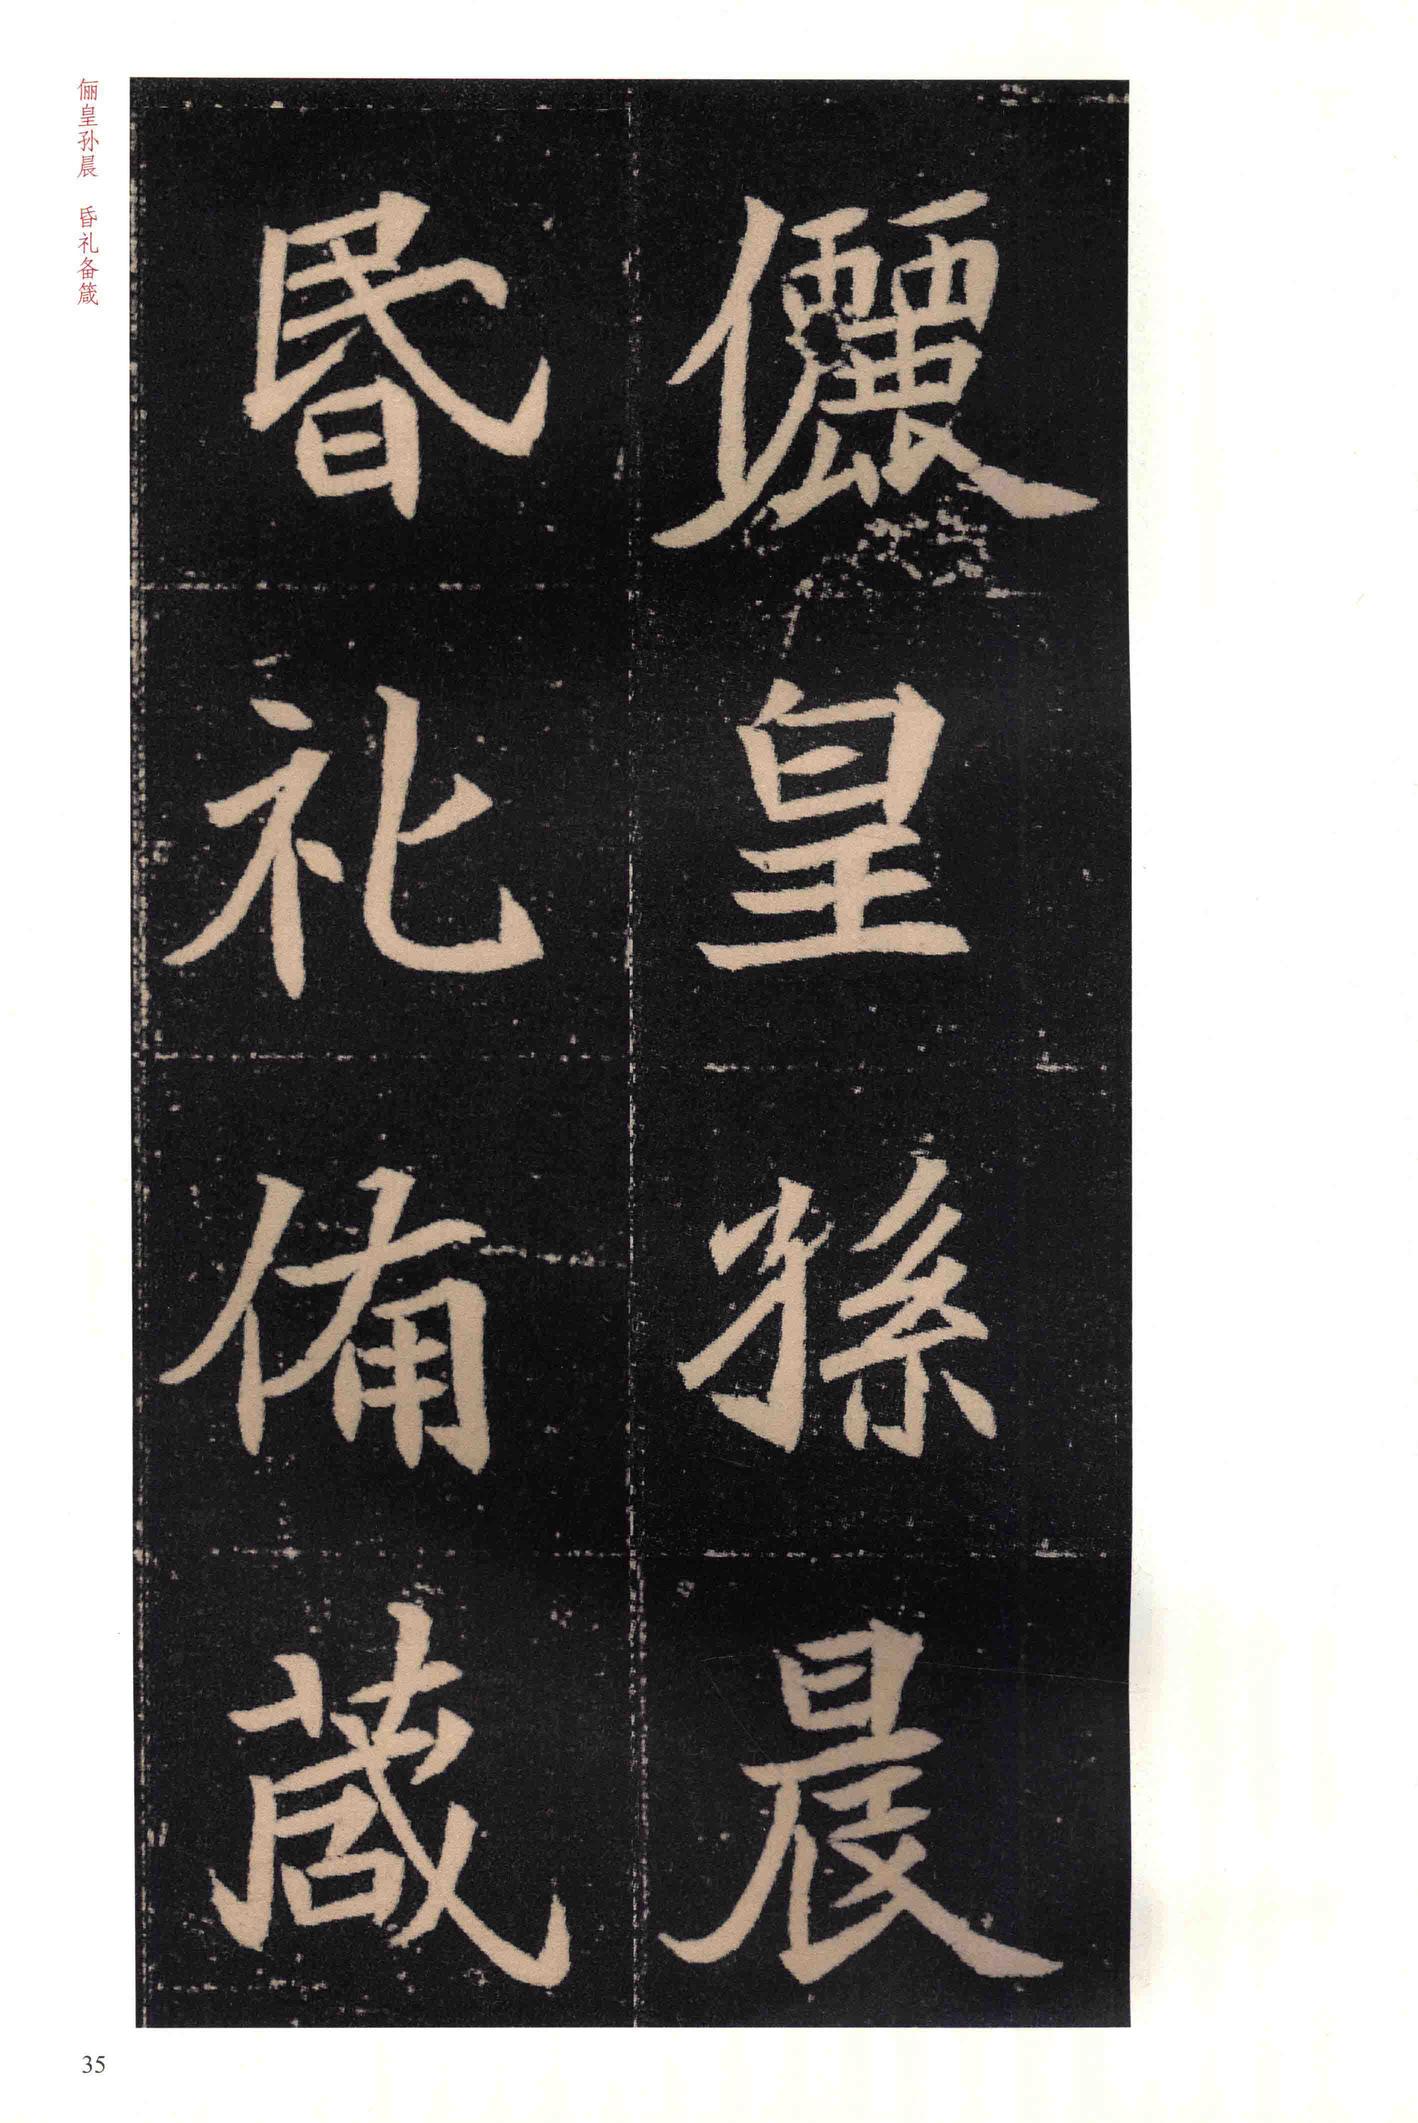 儷皇孫晨
昬礼俻葴
俪皇孙晨 昏礼备箴
35